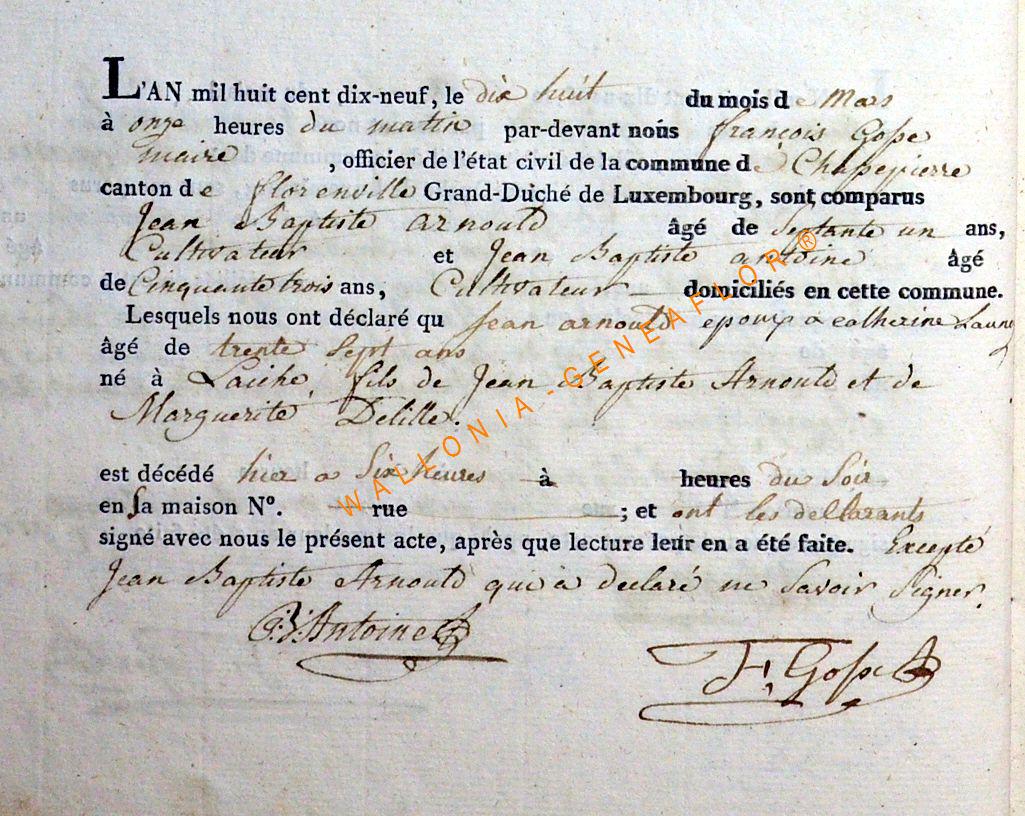 L'AN mil huit cent dix-neuf, le dix huit du mois de Mars
à onze heures du matin par-devant nous françois Gosse
maire , officier de l'état civil de la commune de Chassepierre
canton de florenville Grand-Duché de Luxembourg, sont comparus
Jean Baptiste arnould âgé de Septante un ans,
Cultivateur et Jean Baptiste antoine âgé
de Cinquante trois ans, Cultivateur domiciliés en cette commune.
Lesquels nous ont déclaré qu jean arnould epoux a catherine
âgé de trente Sept ans
né à Laiche, fils de Jean Baptiste Arnould et de
Marguerite Delille.
est décédé hier a Six heures à heures du Soir
en sa maison N°. rue ; et ont les declarants
signé avec nous le présent acte, après que lecture leur en a été faite. Excepté
Jean Baptiste Arnould qui a declaré ne Savoir Signer.
Antoine
F. Gosse
WALLONIA-GENEAFLOR®